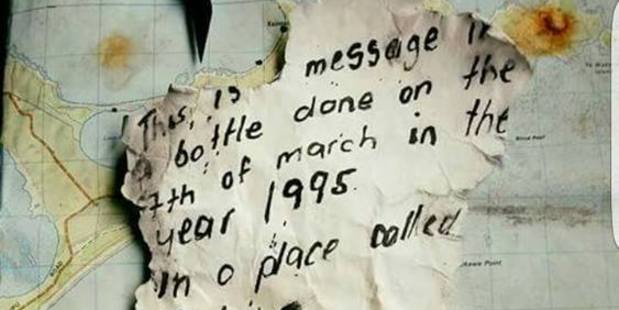 This is message in
bottle done on the
7th of march in the
year 1995.
in a place called
Point